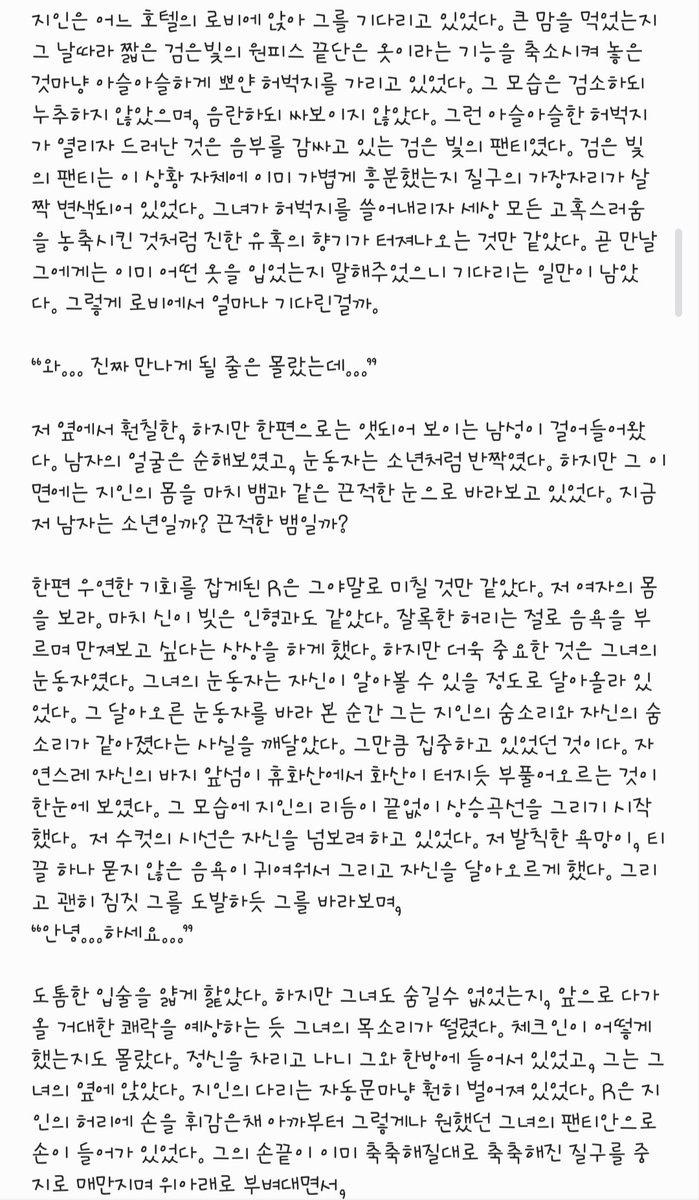 지인은 어느 호텔의 로비에 앉아 그를 기다리고 있었다. 큰 맘을 먹었는지
그 날따라 짧은 검은빛의 원피스 끝단은 옷이라는 기능을 축소시켜 놓은
것마냥 아슬아슬하게 뽀얀 허벅지를 가리고 있었다. 그 모습은 검소하되
누추하지 않았으며, 음란하되 싸보이지 않았다. 그런 아슬아슬한 허벅지
가 열리자 드러난 것은 음부를 감싸고 있는 검은 빛의 팬티였다. 검은 빛
의 팬티는 이 상황 자체에 이미 가볍게 흥분했는지 질구의 가장자리가 살
짝 변색되어 있었다. 그녀가 허벅지를 쓸어내리자 세상 모든 고혹스러움
을 농축시킨 것처럼 진한 유혹의 향기가 터져나오는 것만 같았다. 곧 만날
그에게는 이미 어떤 옷을 입었는지 말해주었으니 기다리는 일만이 남았
다. 그렇게 로비에서 얼마나 기다린걸까.
“와... 진짜 만나게 될 줄은 몰랐는데...”
저 옆에서 훤칠한, 하지만 한편으로는 앳되어 보이는 남성이 걸어들어왔
다. 남자의 얼굴은 순해보였고, 눈동자는 소년처럼 반짝였다. 하지만 그 이
면에는 지인의 몸을 마치 뱀과 같은 끈적한 눈으로 바라보고 있었다. 지금
저 남자는 소년일까? 끈적한 뱀일까?
한편 우연한 기회를 잡게된 R은 그야말로 미칠 것만 같았다. 저 여자의 몸
을 보라. 마치 신이 빚은 인형과도 같았다. 잘록한 허리는 절로 음욕을 부
르며 만져보고 싶다는 상상을 하게 했다. 하지만 더욱 중요한 것은 그녀의
눈동자였다. 그녀의 눈동자는 자신이 알아볼 수 있을 정도로 달아올라 있
었다. 그 달아오른 눈동자를 바라 본 순간 그는 지인의 숨소리와 자신의 숨
소리가 같아졌다는 사실을 깨달았다. 그만큼 집중하고 있었던 것이다. 자
연스레 자신의 바지 앞섬이 휴화산에서 화산이 터지듯 부풀어오르는 것이
한눈에 보였다. 그 모습에 지인의 리듬이 끝없이 상승곡선을 그리기 시작
했다. 저 수컷의 시선은 자신을 넘보려 하고 있었다. 저 발칙한 욕망이, 티
끌 하나 묻지 않은 음욕이 귀여워서 그리고 자신을 달아오르게 했다. 그리
고 괜히 짐짓 그를 도발하듯 그를 바라보며,
“안녕...하세요...”
도톰한 입술을 얇게 핥았다. 하지만 그녀도 숨길수 없었는지, 앞으로 다가
올 거대한 쾌락을 예상하는 듯 그녀의 목소리가 떨렸다. 체크인이 어떻게
했는지도 몰랐다. 정신을 차리고 나니 그와 한방에 들어서 있었고, 그는 그
녀의 옆에 앉았다. 지인의 다리는 자동문마냥 훤히 벌어져 있었다. R은 지
인의 허리에 손을 휘감은채 아까부터 그렇게나 원했던 그녀의 팬티안으로
손이 들어가 있었다. 그의 손끝이 이미 축축해질대로 축축해진 질구를 중
지로 매만지며 위아래로 부벼대면서,